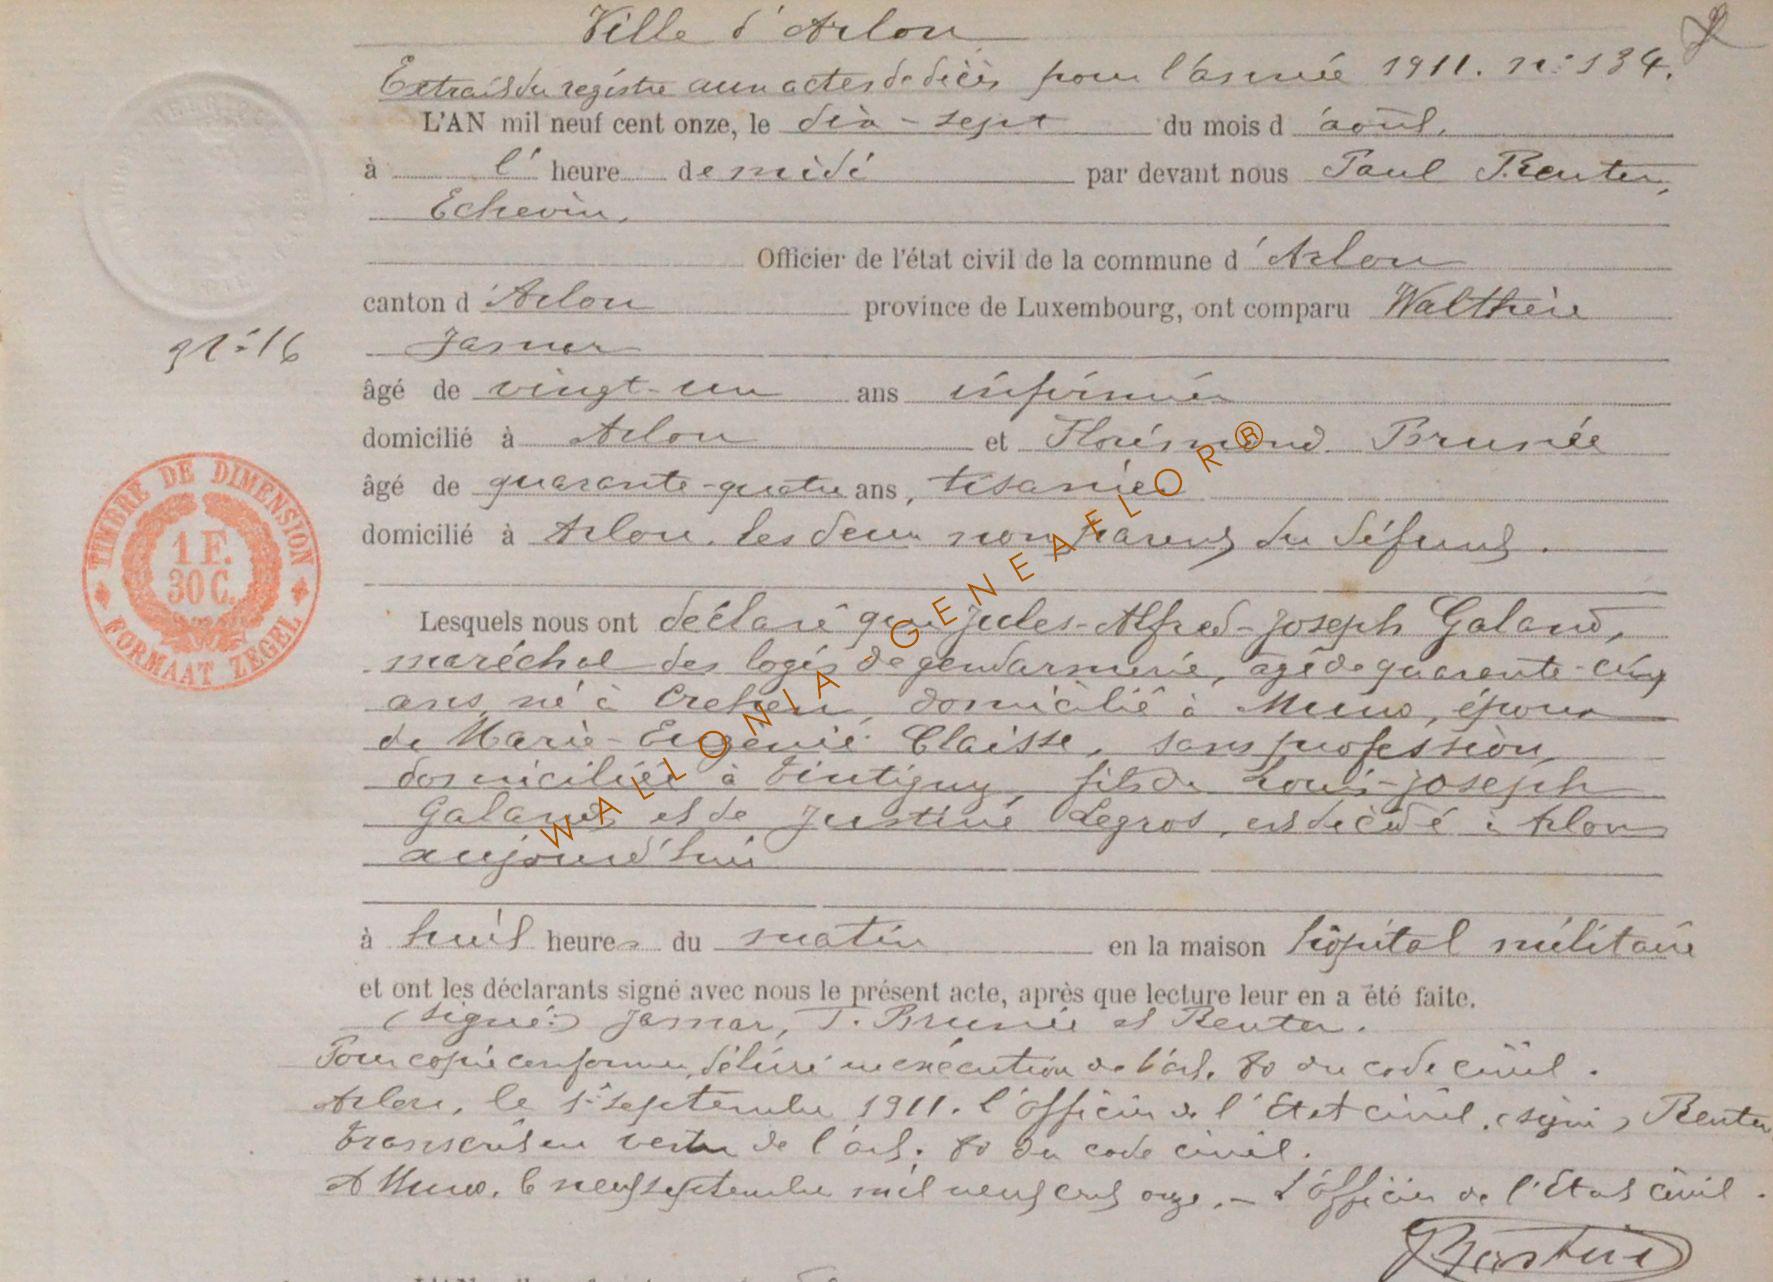 Ville d'Arlon
Extrait du registre aux actes de décès pour l'année 1911. n° 134.
L'AN mil neuf cent onze, le dix-sept du mois d'août,
à l'heure de midi par devant nous Paul Reuter,
Echevin,
Officier de l'état civil de la commune d'Arlon
canton d'Arlon province de Luxembourg, ont comparu Walthère
N° 16
Jamar
âgé de vingt-un ans infirmier
domicilié à Arlon et Florémond Brunée
âgé de quarante-quatre ans, tisanier
domicilié à Arlon. les deux non parents du défunt.
TIMBRE DE DIMENSION
1 F.
30 C.
FORMAAT ZEGEL
Lesquels nous ont déclaré que Jules-Alfred-Joseph Galand,
maréchal des logis de gendarmerie, âgé de quarante-cinq
ans, né à Crehen, domicilié à Muno, époux
de Marie-Eugénie Claisse, sans profession,
domiciliée à Tintigny, fils de Louis-Joseph
Galand et de Justine Legros, est décédé à Arlon
aujourd'hui
à huit heures du matin en la maison hôpital militaire
et ont les déclarants signé avec nous le présent acte, après que lecture leur en a été faite.
(signé:) Jamar, F. Brunée et Reuter.
Pour copie conforme, délivré en exécution de l'art. 80 du code civil.
Arlon, le 1r septembre 1911. l'officier de l'Etat civil. (signé) Reuter
transcrit en vertu de l'art. 80 du code civil.
A Muno, le neuf septembre mil neuf cent onze. - L'officier de l'Etat civil.
WALLONIA - GENEAFLOR®